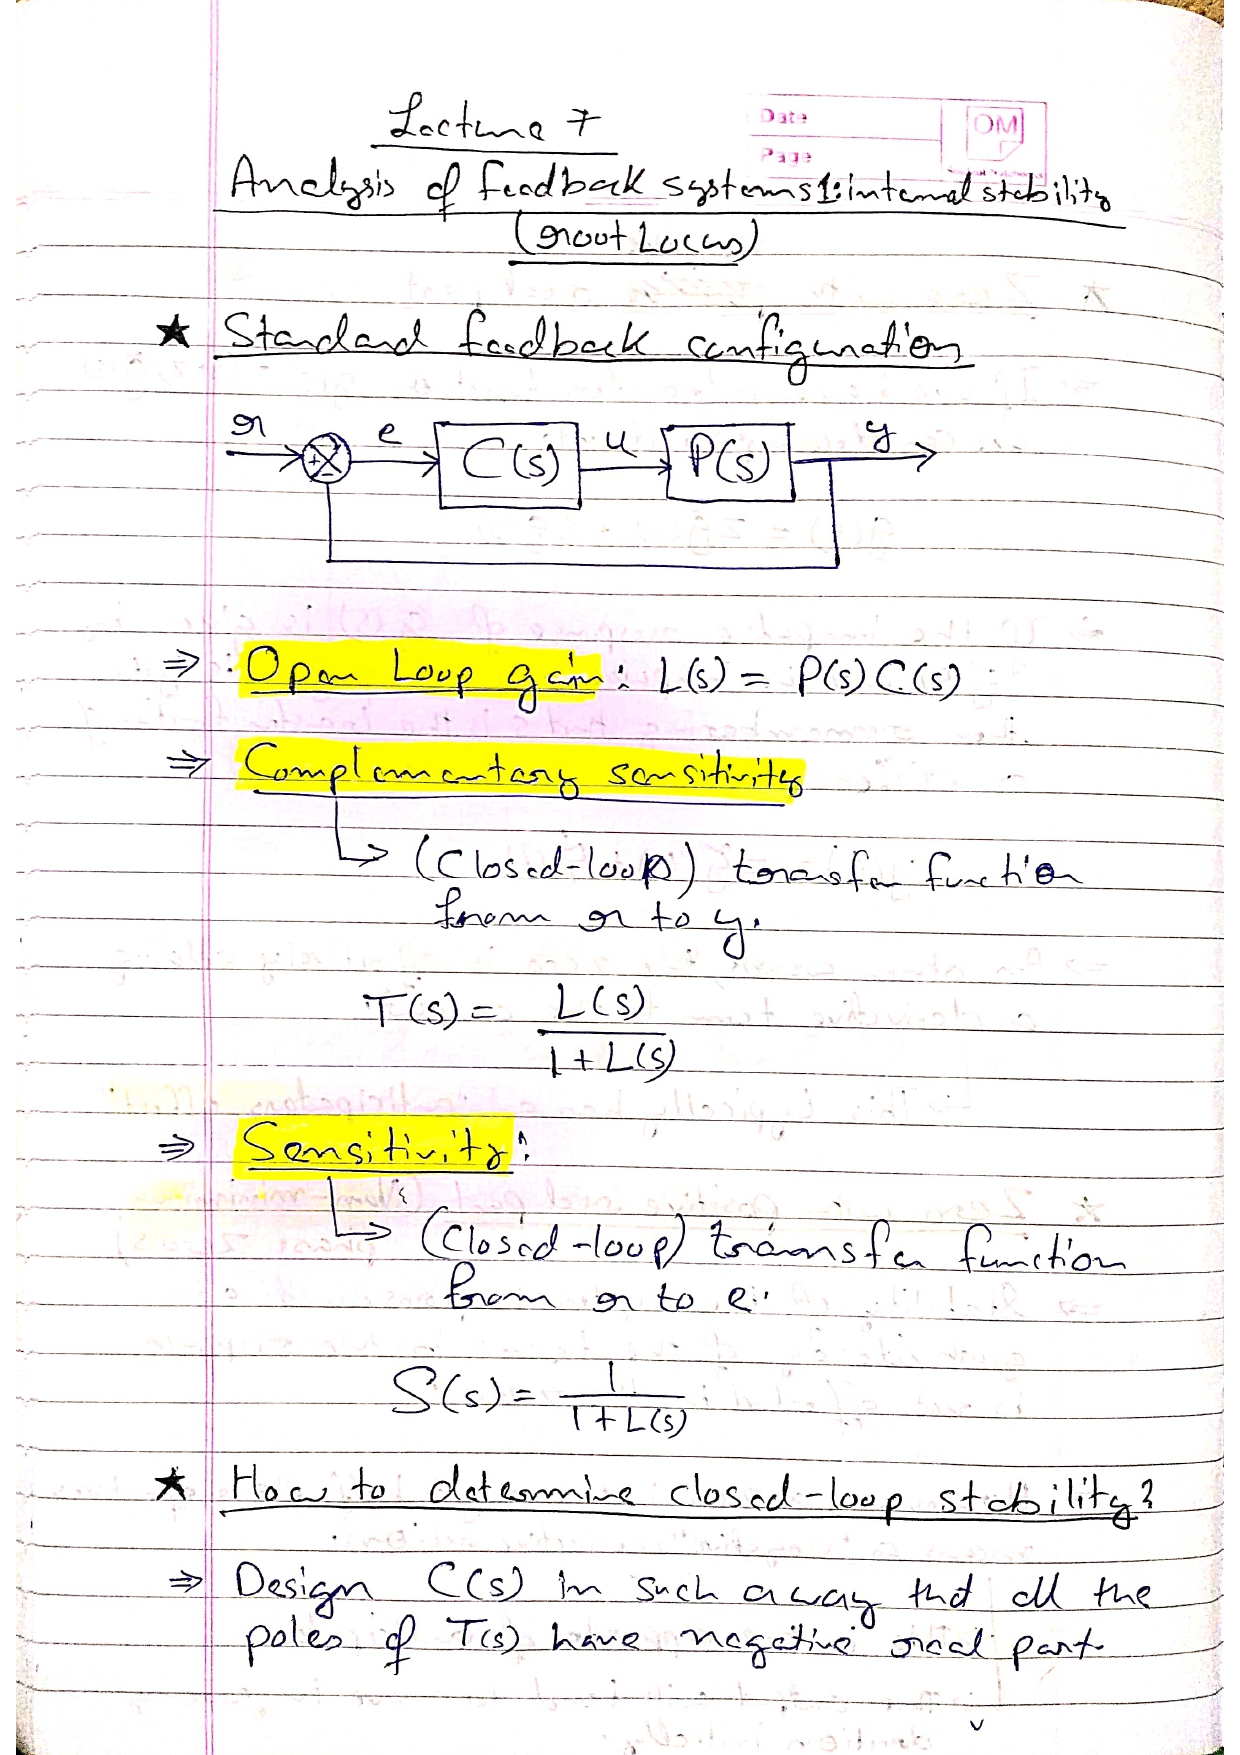 Lecture 7
Date
OM
Page
Analysis of feedback systems 1: internal stability
(root Locus)
★ Standard feedback configuration
r e C(s) u P(s) y
+ -
⇒ Open Loop gain: L(s) = P(s) C(s)
⇒ Complementary sensitivity
↳ (Closed-loop) transfer function
from r to y.
T(s) = L(s)
1 + L(s)
⇒ Sensitivity:
↳ (Closed-loop) transfer function
from r to e.
S(s) = 1
1 + L(s)
★ How to determine closed-loop stability?
⇒ Design C(s) in such a way that all the
poles of T(s) have negative real part.